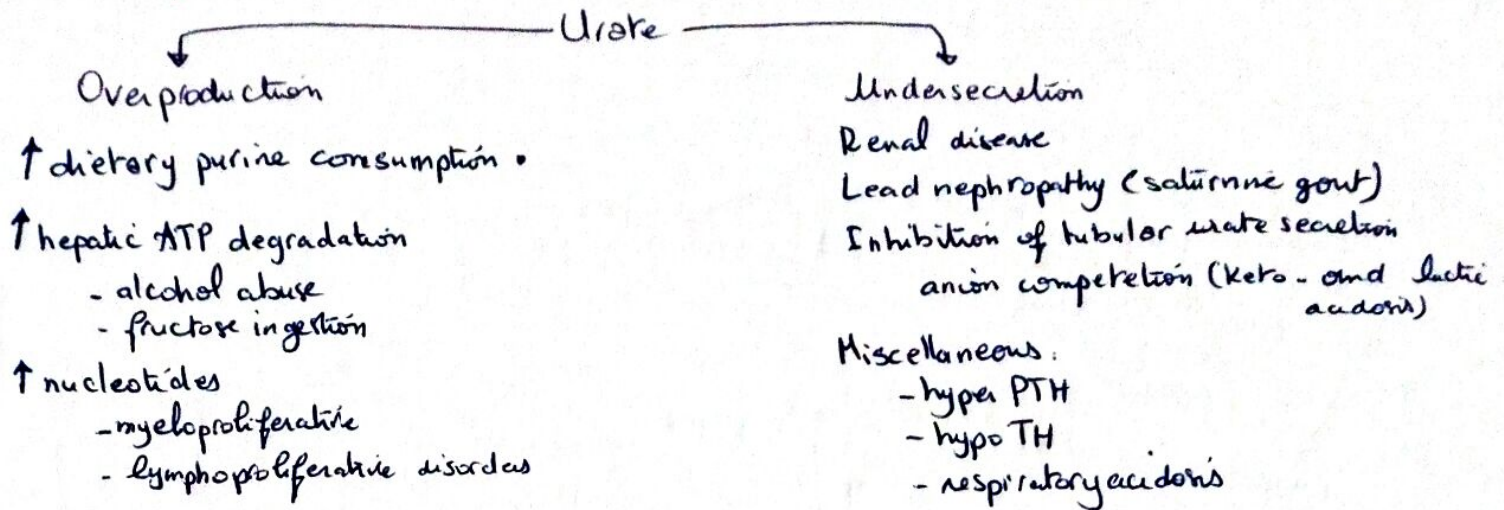 Urate
Overproduction
↑ dietary purine consumption.
↑ hepatic ATP degradation
- alcohol abuse
- fructose ingestion
↑ nucleotides
- myeloproliferative
- lymphoproliferative disorders
Undersecretion
Renal disease
Lead nephropathy (saturnine gout)
Inhibition of tubular urate secretion
anion competetion (keto- and lactic
acidosis)
Miscellaneous:
- hyper PTH
- hypo TH
- respiratory acidosis